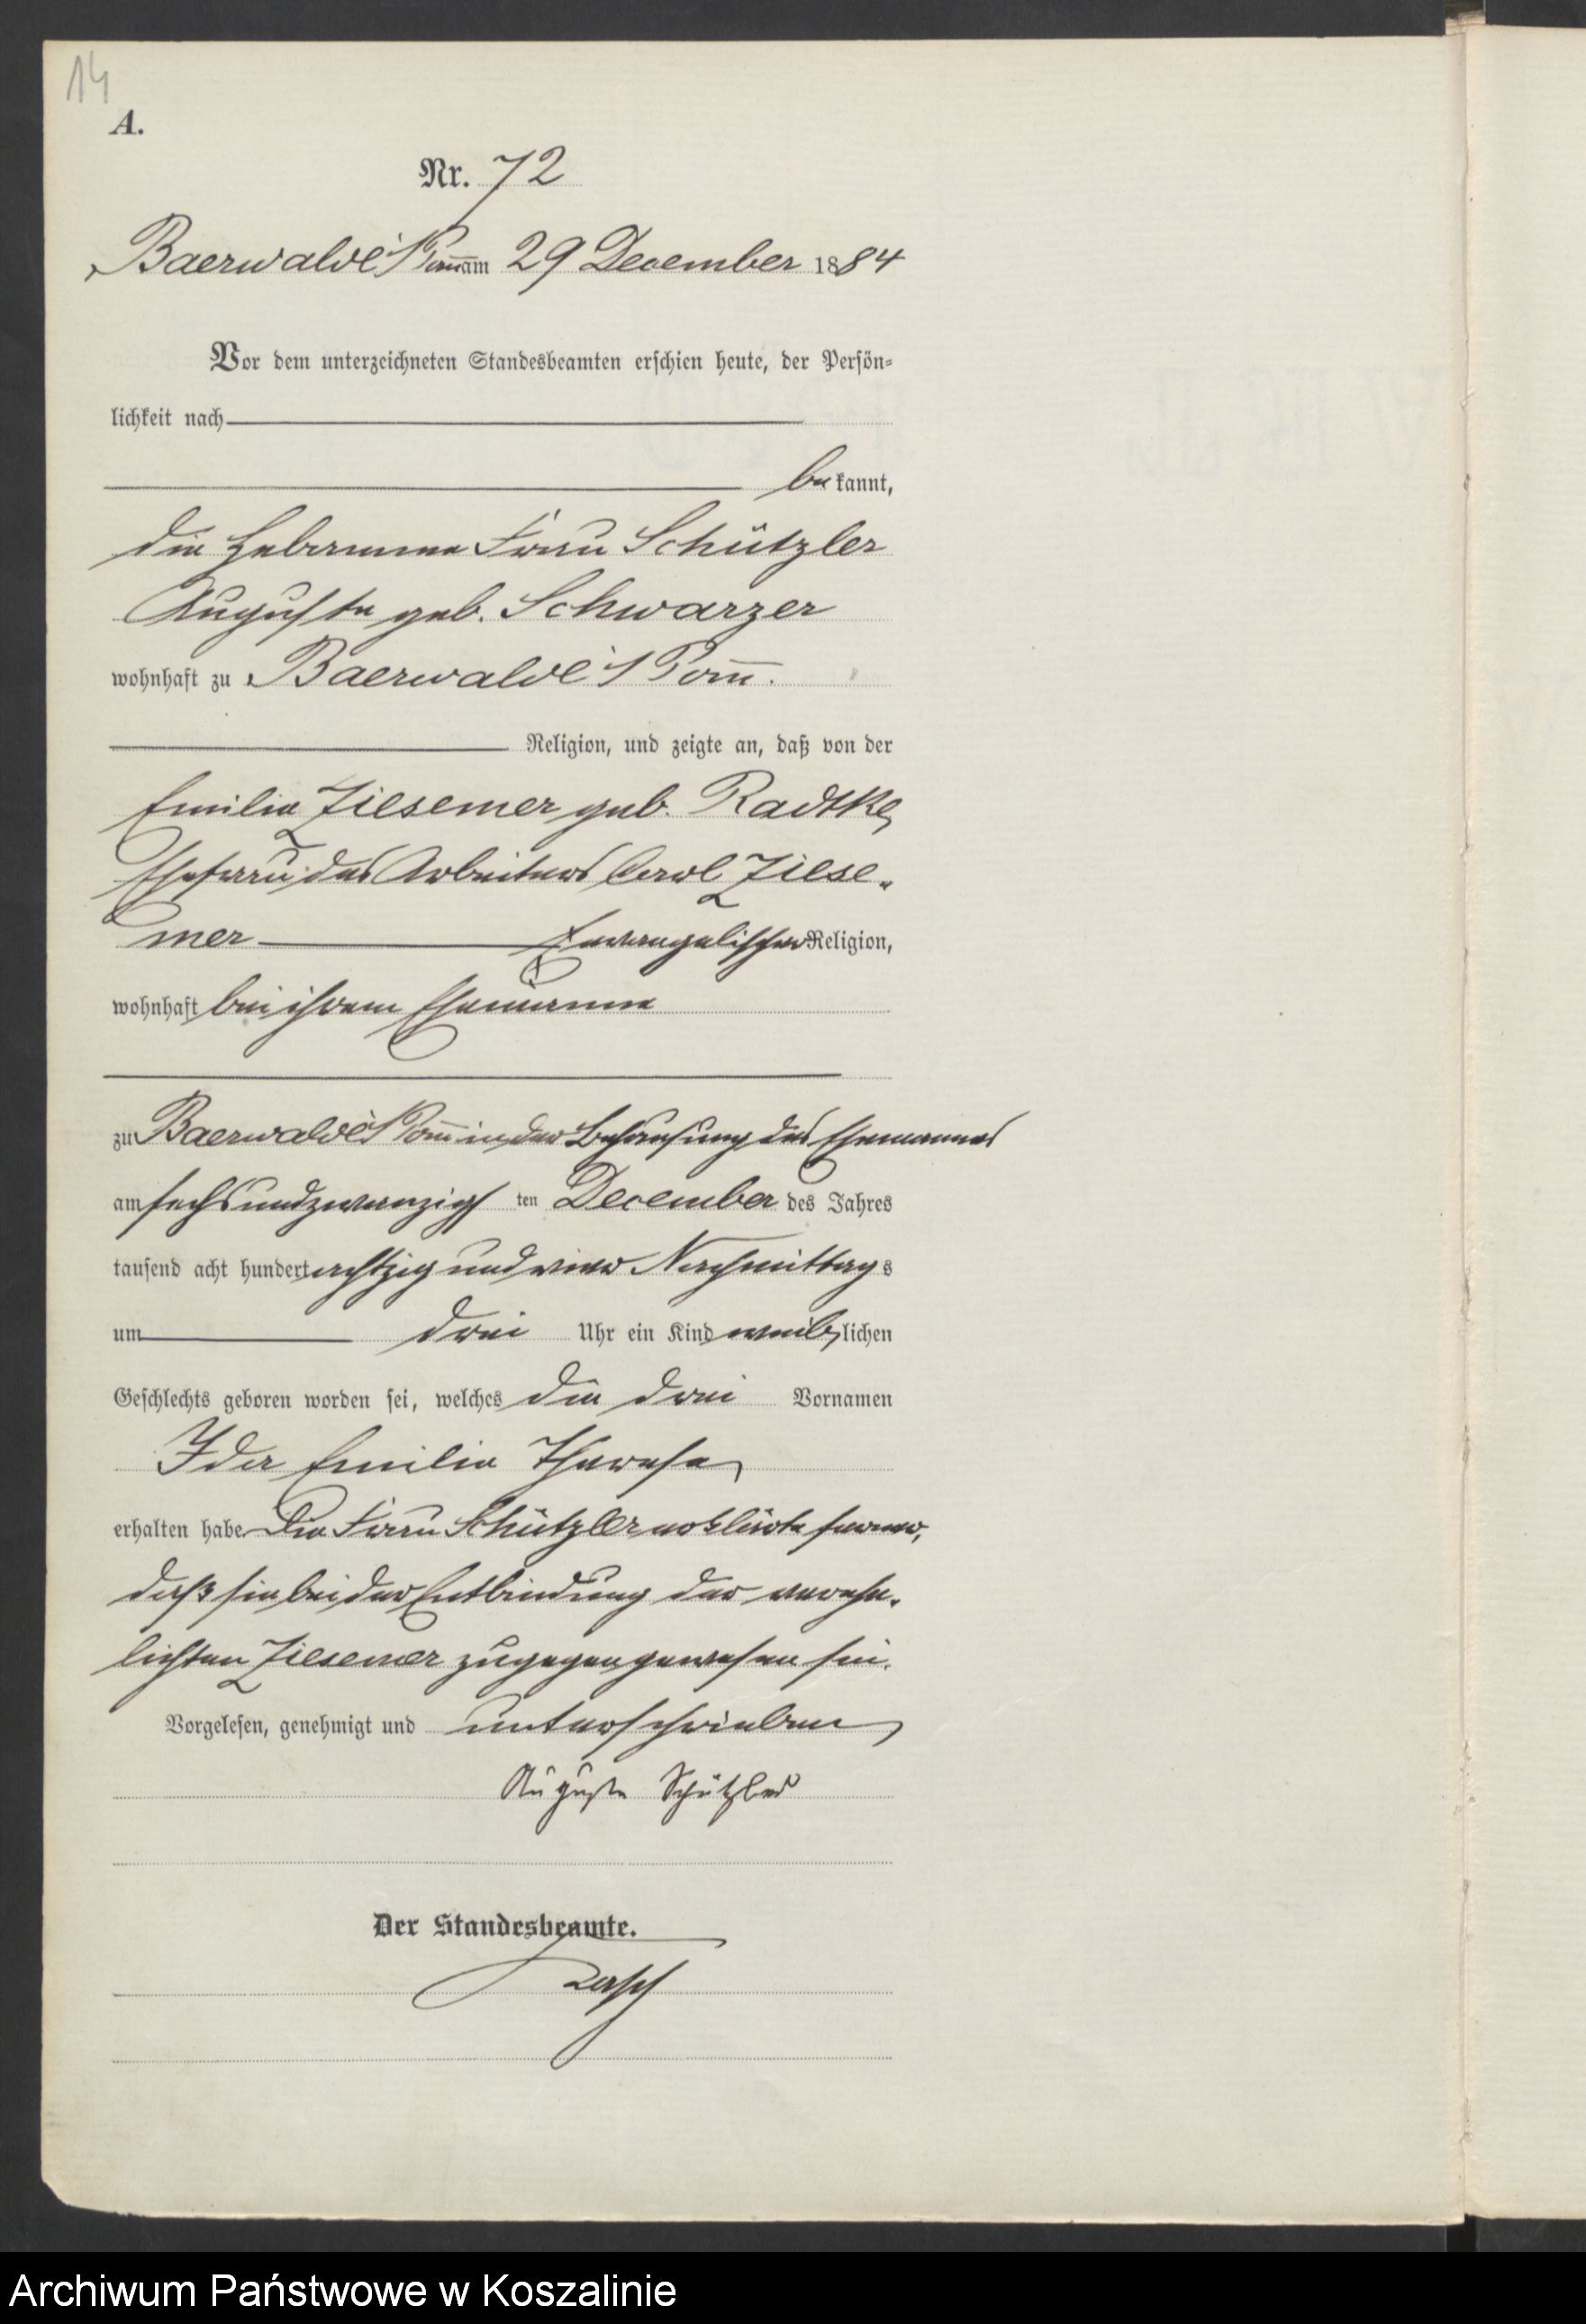 14
A.
Nr. 72
Baerwalde i/Pom am 29 December 1884
Vor dem unterzeichneten Standesbeamten erschien heute, der Persön-
lichkeit nach
bekannt,
die Hebamme Frau Schützler
Auguste geb. Schwarzer
wohnhaft zu Baerwalde i/Pom.
Religion, und zeigte an, daß von der
Emilie Ziesemer geb. Radtke,
Ehefrau des Arbeiters Carl Ziese-
mer evangelischer Religion,
wohnhaft bei ihrem Ehemanne
zu Baerwalde i/Pom in der Behausung des Ehemannes
am sechsundzwanzigsten December des Jahres
tausend acht hundert achtzig und vier Nachmittags
um drei Uhr ein Kind weiblichen
Geschlechts geboren worden sei, welches die drei Vornamen
Ida Emilie Therese
erhalten habe Die Frau Schützler erklärte ferner,
daß sie bei der Entbindung der verehe-
lichten Ziesemer zugegen gewesen sei.
Vorgelesen, genehmigt und unterschrieben
Auguste Schützler
Der Standesbeamte.
Archiwum Państwowe w Koszalinie